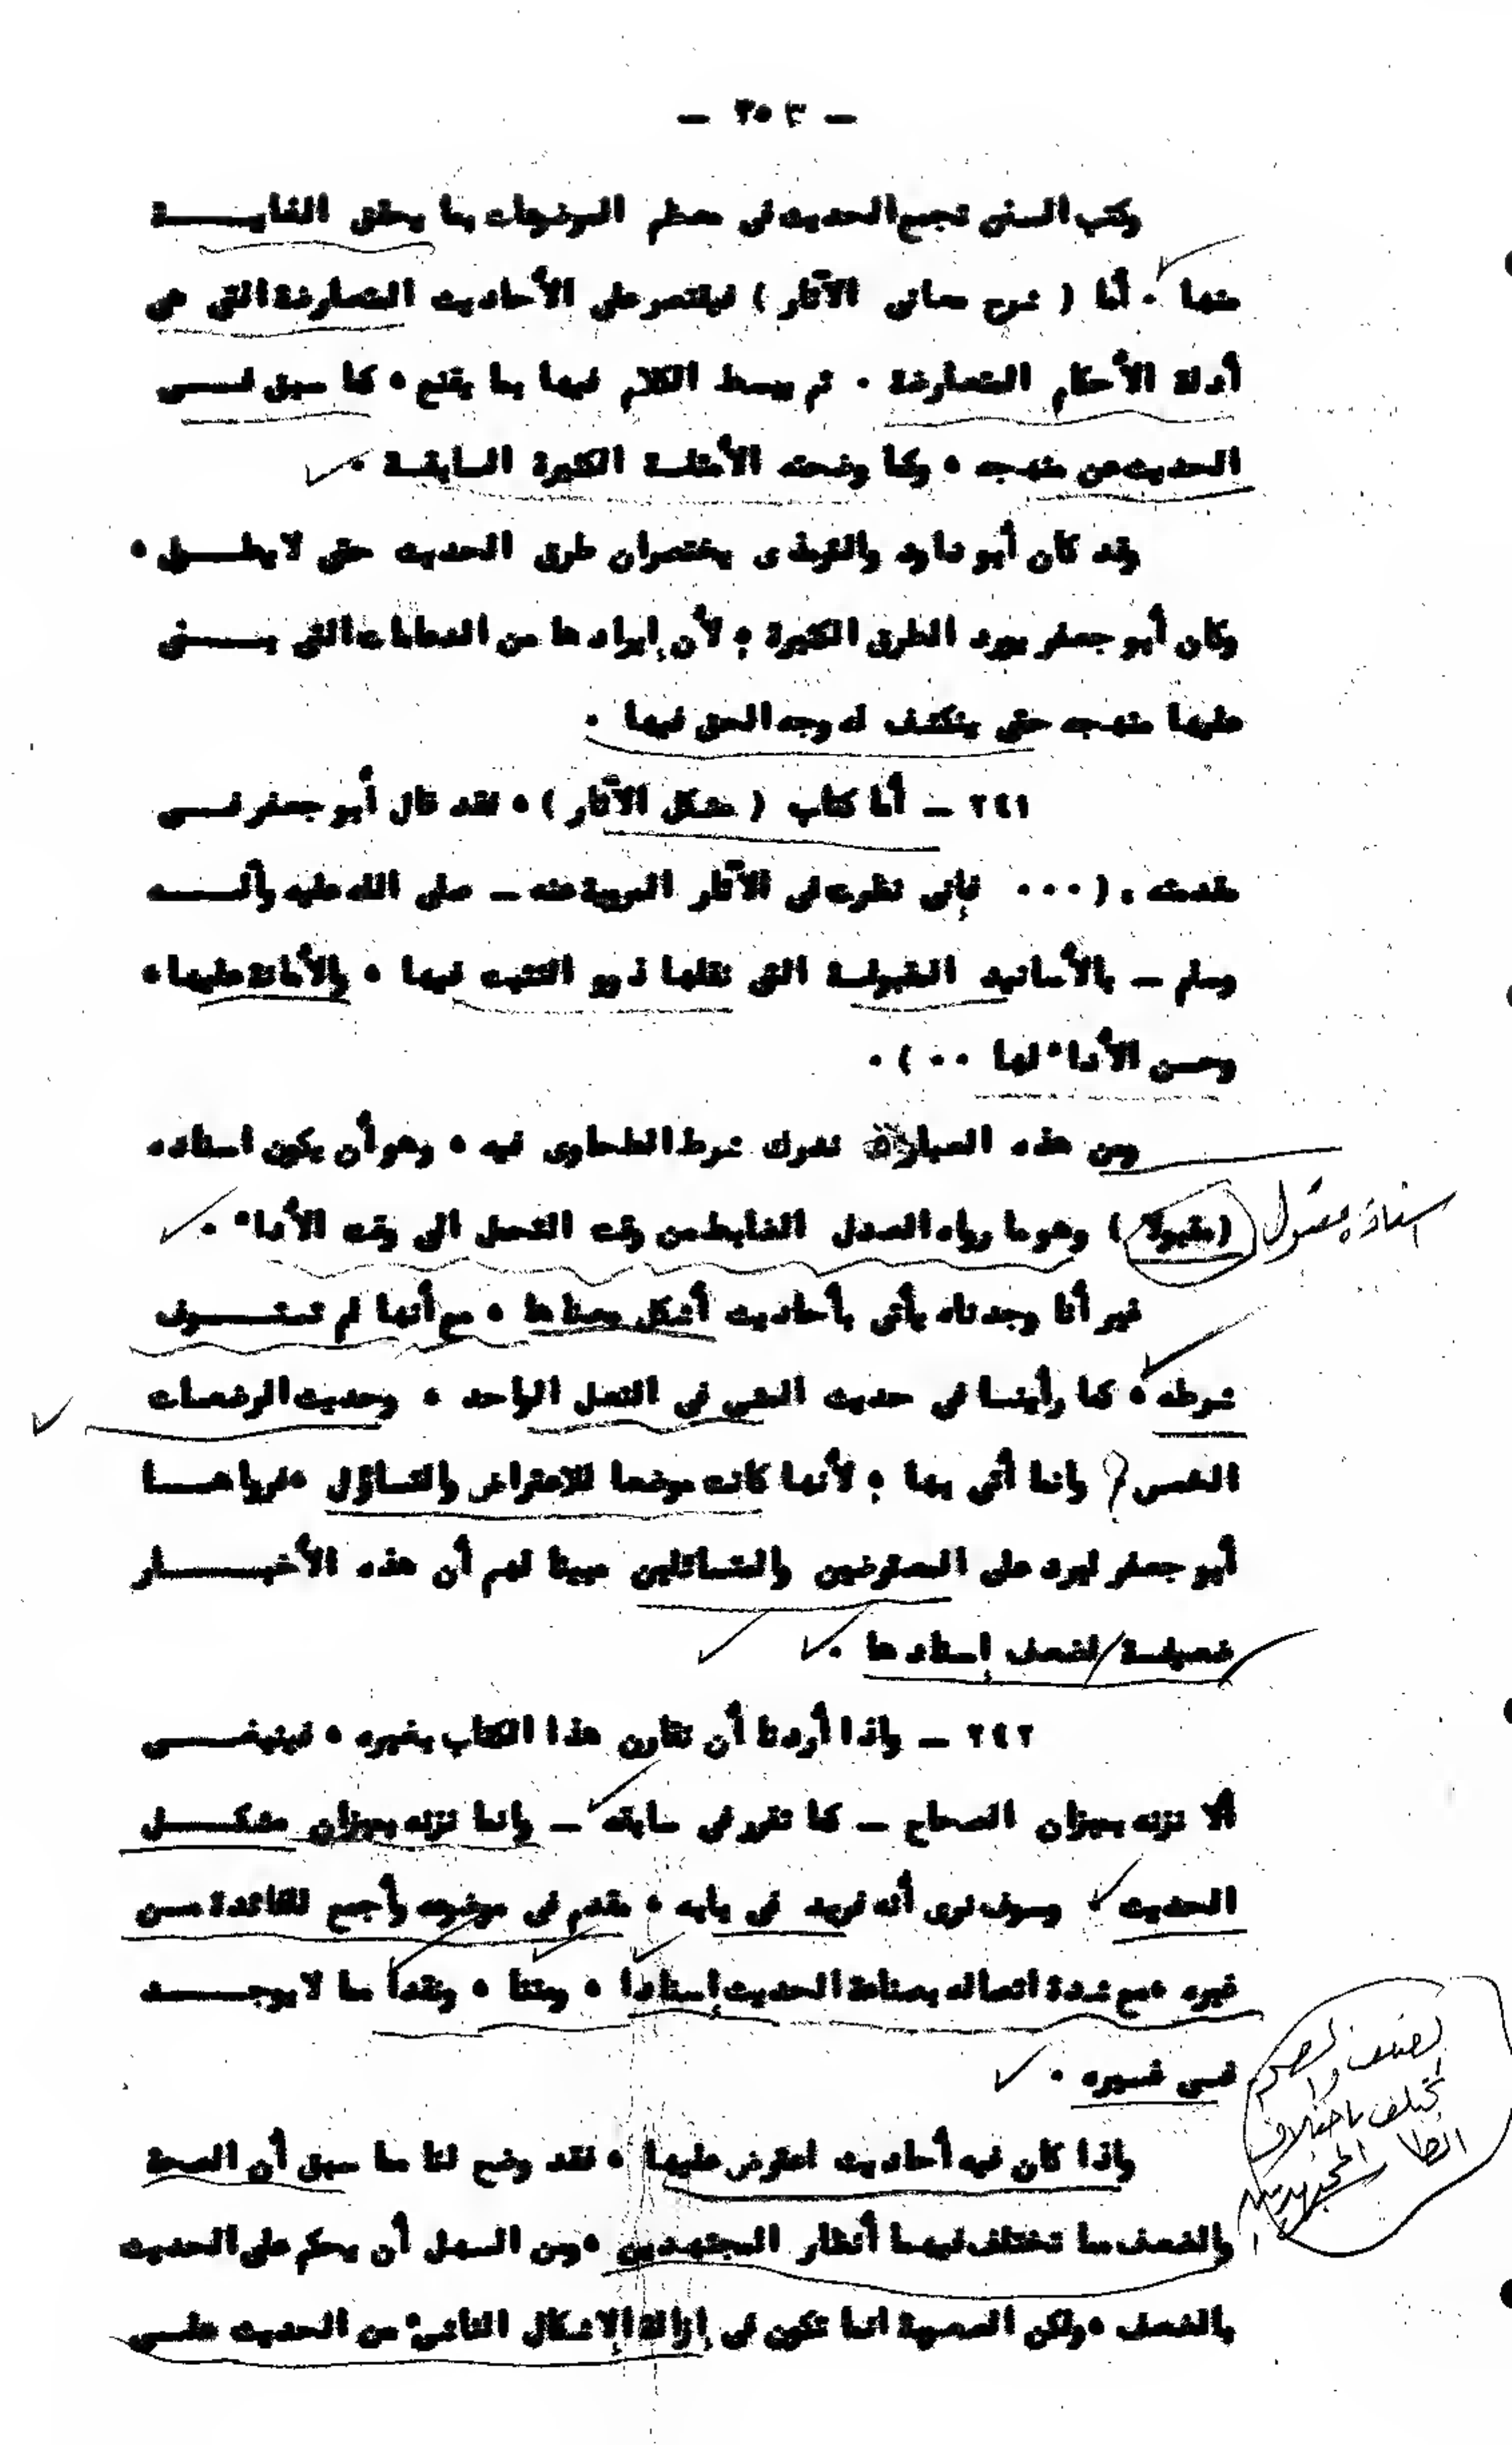 — ٣٥٣ —
وكتب السنن تجمع الحديث فى معظم الموضوعات بما يحقق الغايـــــة
منها . أما ( شرح معانى الآثار ) فيقتصر على الأحاديث المتعارضة التى هى
أدلة الأحكام المتعارضة . ثم يبسط الكلام فيها بما يقنع ، كما سبق لـــى
الحديث عن منهجه ، وكما وضحته الأمثلـة الكثيرة السابقـة .
وقد كان أبو داود والترمذى يختصران طرق الحديث حتى لا يطـــول ،
وكان أبو جعفر يورد الطرق الكثيرة ؛ لأن إيرادها من الدعامات التى بــــنى
عليها منهجه حتى ينكشف له وجه الحق فيها .
٢٤١ — أما كتاب ( مشكل الآثار ) ، فقد قال أبو جعفر فــــى
مقدمته : ( ... فإنى نظرت فى الآثار المروية عنه — صلى الله عليه وآلـــه
وسلم — بالأسانيد المقبولـة التى نقلها ذوو التثبت فيها ، والأمانة عليها ،
وحسن الأداء لها .. ) .
ومن هذه العبارة ندرك شرط الطحاوى فيه ، وهو أن يكون اسناده
( مقبولا ) وهو ما رواه العدل الضابط من وقت التحمل الى وقت الأداء .
اسناده مقبول
غير أنا وجدناه يأتى بأحاديث أشكل معناها ، مع أنها لم تستــــوف
شرطه ، كما رأينـا فى حديث المشى فى النعل الواحد ، وحديث الرضعات
الخمس ؟ وانما أتى بها ؛ لأنها كانت موضعا للاعتراض والتساؤل ، فرواهـــا
أبو جعفر ليرد على المعترضين والمتسائلين مبينا لهم أن هذه الأخبـــــار
ضعيفـة / لضعف إسنادها .
٢٤٢ — واذا أردنا أن نقارن هذا الكتاب بغيره ، فينبغــــى
ألا نزنه بميزان الصحاح — كما تقرر فى سابقه — وانما نزنه بميزان مشكــــل
الحديث ، وسوف نرى أنه فريد فى بابه ، مقدم فى موضوعه وأجمع للفائدة مـــن
غيره ، مع شدة اتصاله بصناعة الحديث إسنادا ، ومتنا ، ونقدا مما لا يوجــــد
فـى غـيره .
واذا كان فيه أحاديث اعترض عليها ، فقد وضح لنا مما سبق أن الصحة
والضعف مما تختلف فيهـما أنظار المجتهدين ، ومن السهل أن يحكم على الحديث
الضعف والصحة
تختلف باختلاف
انظار المجتهدين
بالضعف ، ولكن الصعوبة انما تكون فى إزالة الإشكال الناشئ من الحديث علـــى